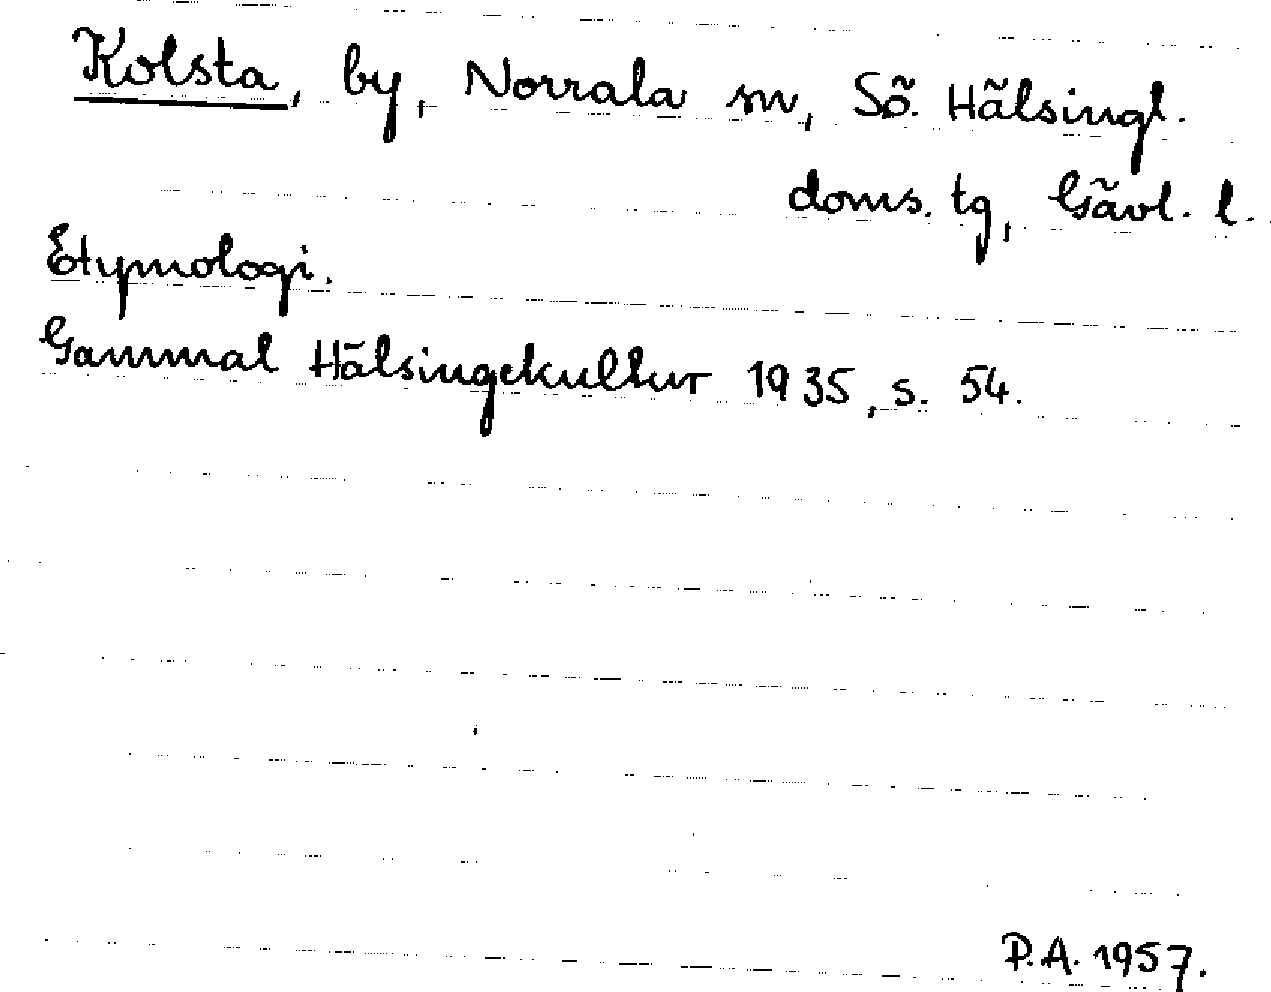 Kolsta, by, Norrala sn, Sö. Hälsingl.
doms. tg, Gävl. l.
Etymologi.
Gammal Hälsingekultur 1935, s. 54.
P.A. 1957.